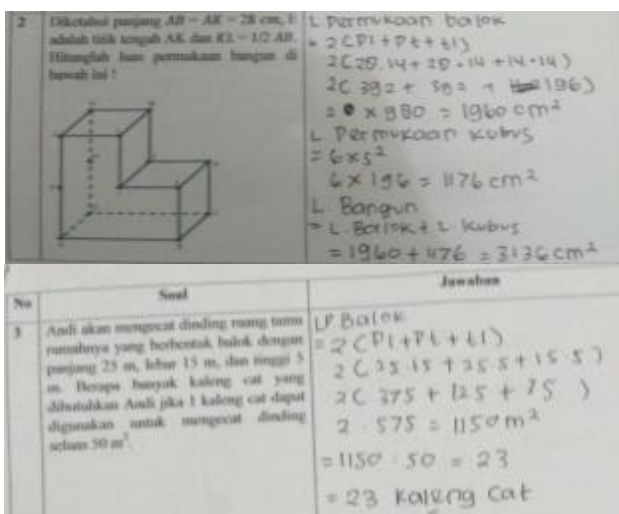 2
Diketahui panjang AB = AK = 28 cm, E
adalah titik tengah AK dan KL = 1/2 AB.
Hitunglah luas permukaan bangun di
bawah ini !
L Permukaan balok
= 2(Pl+Pt+tl)
2(28.14+28.14+14.14)
2(392+392+196)
2 × 980 = 1960 cm²
L Permukaan kubus
= 6×s²
6 × 196 = 1176 cm²
L Bangun
= L. Balok + L kubus
= 1960 + 1176 = 3136 cm²
No Soal Jawaban
3
Andi akan mengecat dinding ruang tamu
rumahnya yang berbentuk balok dengan
panjang 25 m, lebar 15 m, dan tinggi 5
m. Berapa banyak kaleng cat yang
dibutuhkan Andi jika 1 kaleng cat dapat
digunakan untuk mengecat dinding
seluas 50 m².
LP Balok
= 2(Pl+Pt+tl)
2(25.15+25.5+15.5)
2(375+125+75)
2.575 = 1150 m²
= 1150 : 50 = 23
= 23 Kaleng Cat